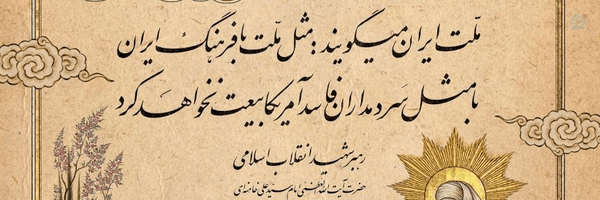 ملّت ایران میگویند: مثل ملّت بافرهنگ ایران
با مثل سردمداران فاسد آمریکا بیعت نخواهد کرد
رهبر شهید انقلاب اسلامی
حضرت آیت الله العظمی امام سید علی خامنه‌ای